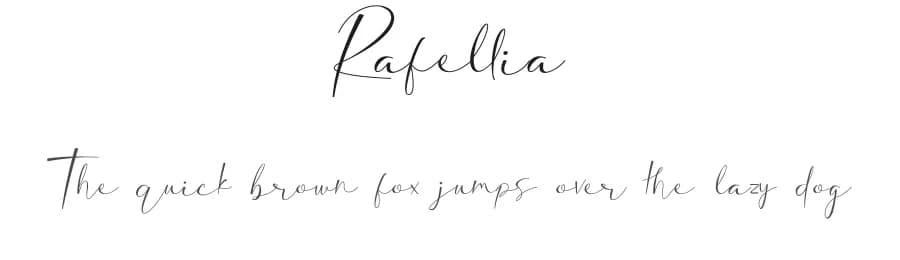 Rafellia
The quick brown fox jumps over the lazy dog